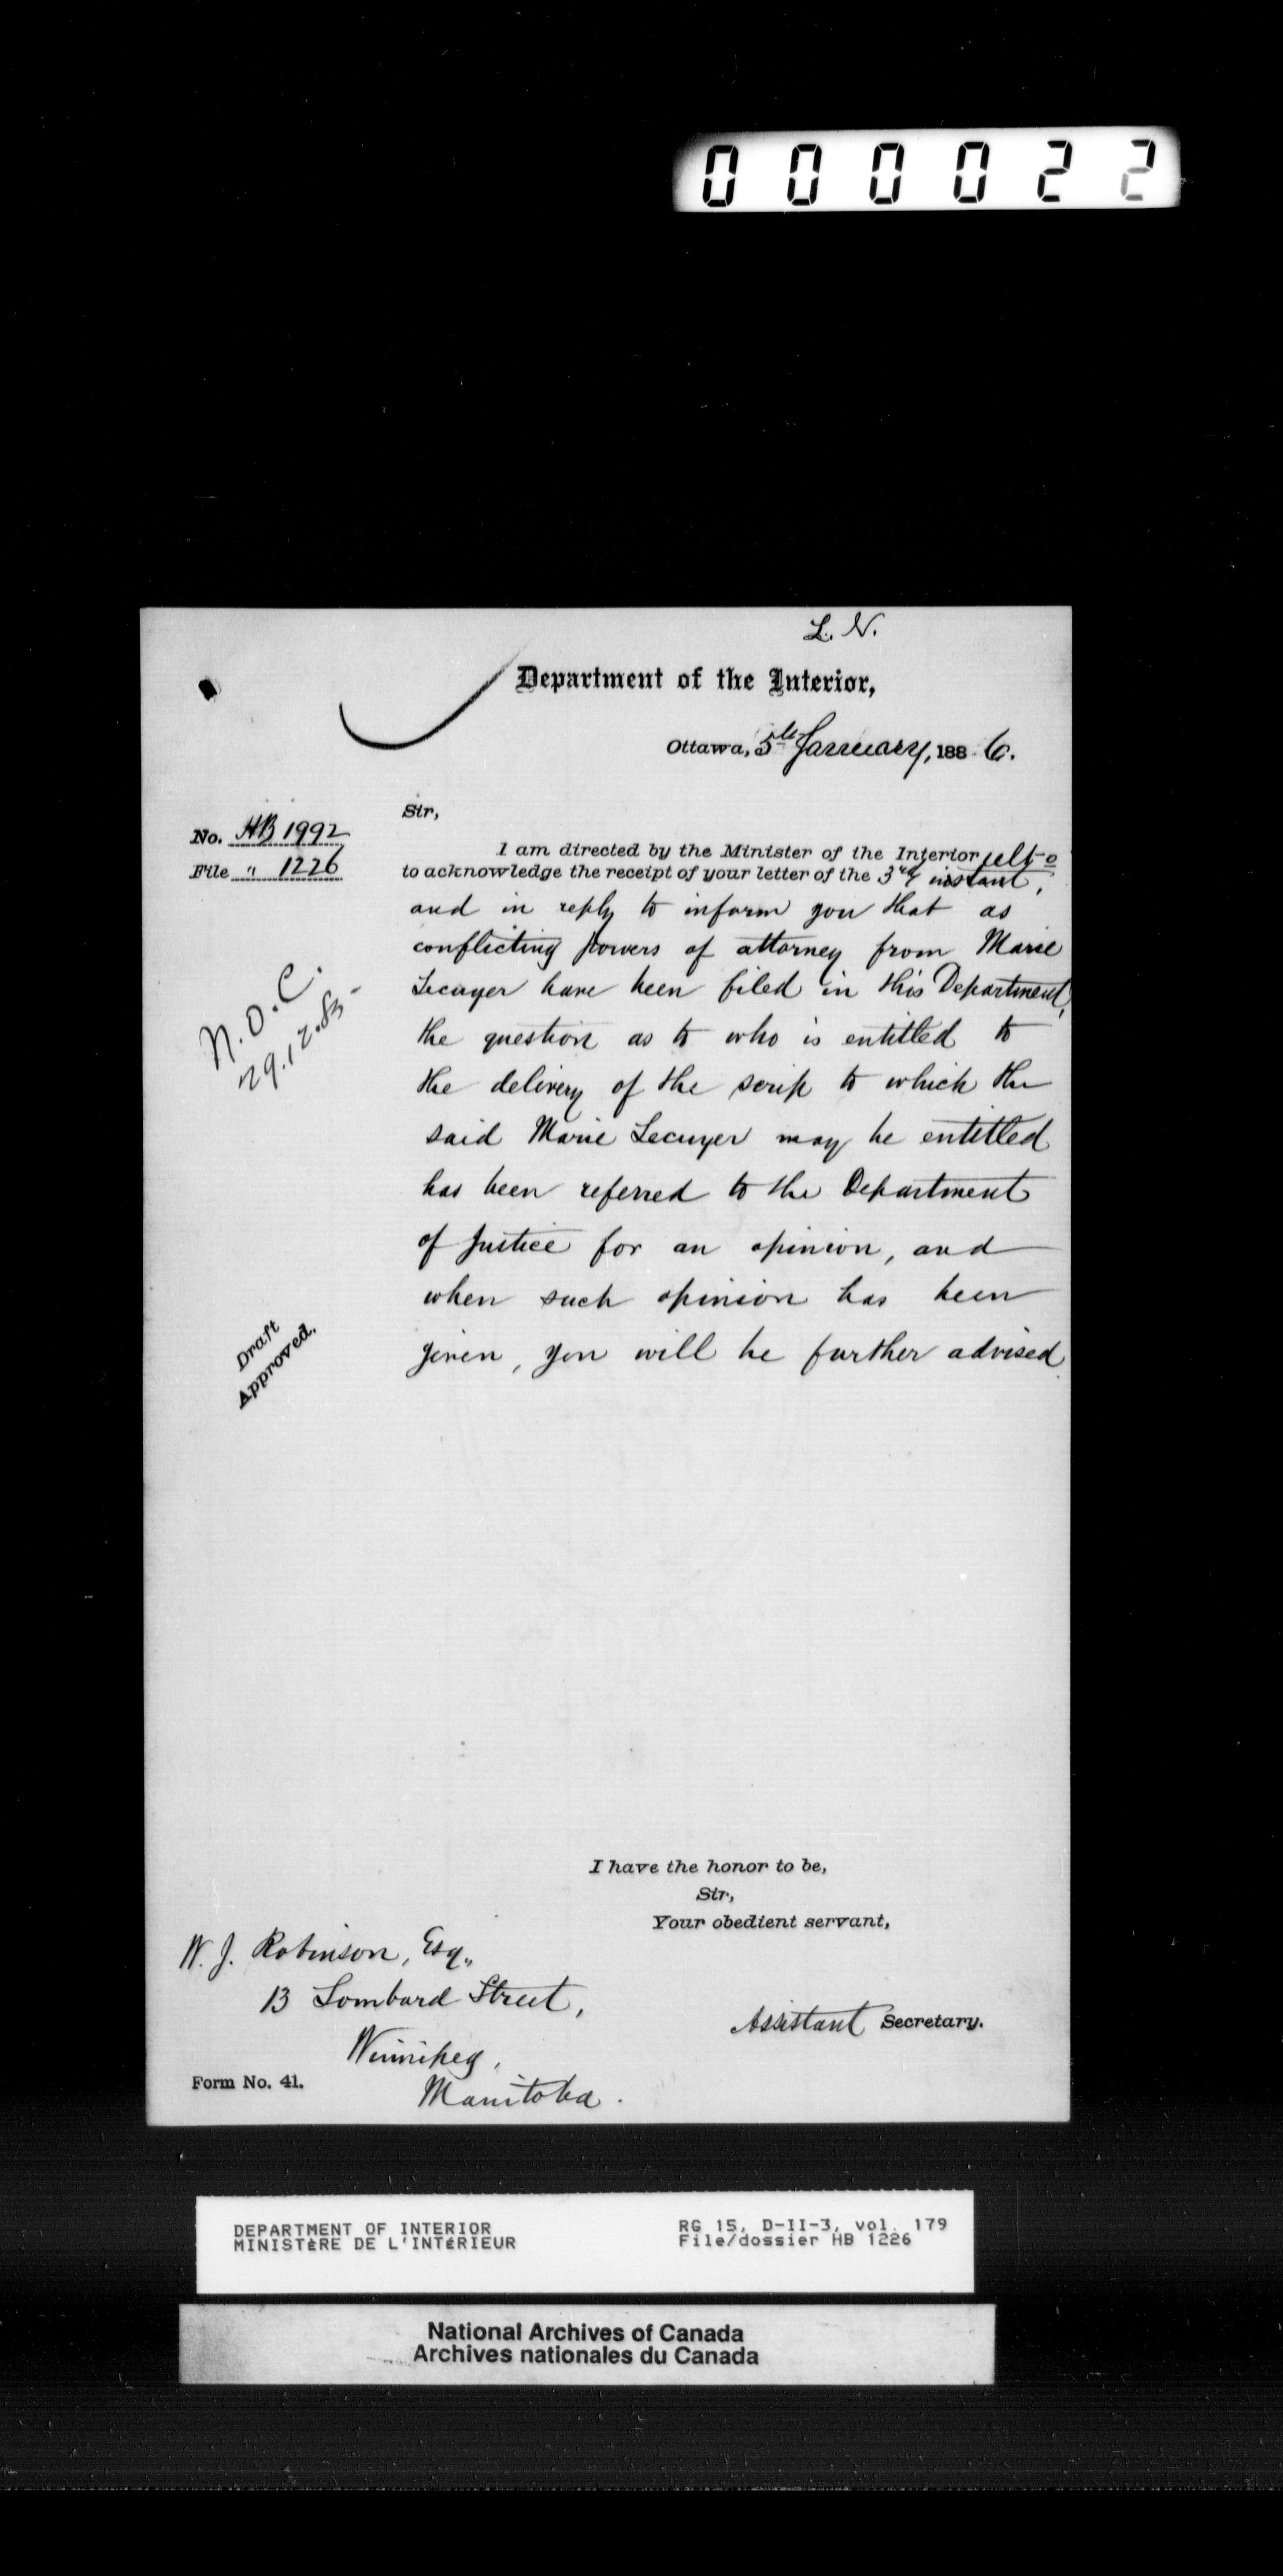 000022
L. N.
Department of the Interior,
Ottawa, 5th January, 1886.
Sir,
No. HB 1992
File " 1226
I am directed by the Minister of the Interior
ulto
to acknowledge the receipt of your letter of the 3rd instant,
and in reply to inform you that as
conflicting powers of attorney from Marie
Lecuyer have been filed in this Department,
the question as to who is entitled to
the delivery of the scrip to which the
said Marie Lecuyer may be entitled
has been referred to the Department
of Justice for an opinion, and
when such opinion has been
given, you will be further advised.
N.O.C.
29.12.85
Draft
Approved.
I have the honor to be,
Sir,
Your obedient servant,
W. J. Robinson, Esq.,
13 Lombard Street,
Winnipeg,
Manitoba.
Assistant Secretary.
Form No. 41.
DEPARTMENT OF INTERIOR
MINISTÈRE DE L'INTÉRIEUR
RG 15, D-II-3, vol. 179
File/dossier HB 1226
National Archives of Canada
Archives nationales du Canada